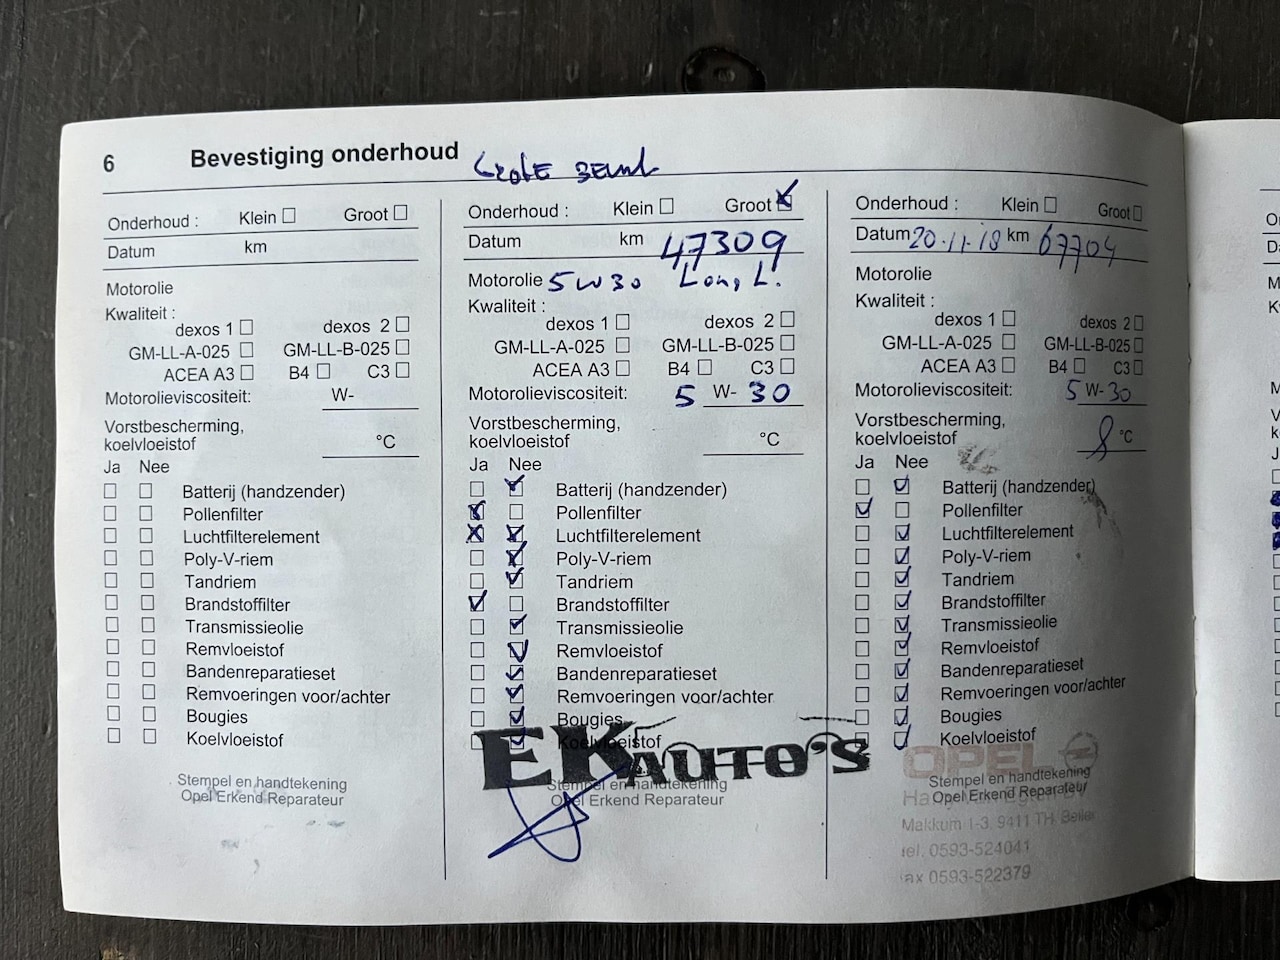 6 Bevestiging onderhoud
GROTE BEURT
Onderhoud : Klein Groot
Datum km
Motorolie
Kwaliteit :
dexos 1 dexos 2
GM-LL-A-025 GM-LL-B-025
ACEA A3 B4 C3
Motorolieviscositeit: W-
Vorstbescherming,
koelvloeistof °C
Ja Nee
Batterij (handzender)
Pollenfilter
Luchtfilterelement
Poly-V-riem
Tandriem
Brandstoffilter
Transmissieolie
Remvloeistof
Bandenreparatieset
Remvoeringen voor/achter
Bougies
Koelvloeistof
Stempel en handtekening
Opel Erkend Reparateur
Onderhoud : Klein Groot
Datum km 47309
Motorolie 5W30 Long L.
Kwaliteit :
dexos 1 dexos 2
GM-LL-A-025 GM-LL-B-025
ACEA A3 B4 C3
Motorolieviscositeit: 5 W- 30
Vorstbescherming,
koelvloeistof °C
Ja Nee
Batterij (handzender)
Pollenfilter
Luchtfilterelement
Poly-V-riem
Tandriem
Brandstoffilter
Transmissieolie
Remvloeistof
Bandenreparatieset
Remvoeringen voor/achter
Bougies
Koelvloeistof
EK AUTO'S
Stempel en handtekening
Opel Erkend Reparateur
Onderhoud : Klein Groot
Datum 20-11-18 km 67704
Motorolie
Kwaliteit :
dexos 1 dexos 2
GM-LL-A-025 GM-LL-B-025
ACEA A3 B4 C3
Motorolieviscositeit: 5 W-30
Vorstbescherming,
koelvloeistof °C
Ja Nee
Batterij (handzender)
Pollenfilter
Luchtfilterelement
Poly-V-riem
Tandriem
Brandstoffilter
Transmissieolie
Remvloeistof
Bandenreparatieset
Remvoeringen voor/achter
Bougies
Koelvloeistof
OPEL
Stempel en handtekening
Opel Erkend Reparateur
Makkum 1-3, 9411 TH Beilen
tel. 0593-524041
fax 0593-522379